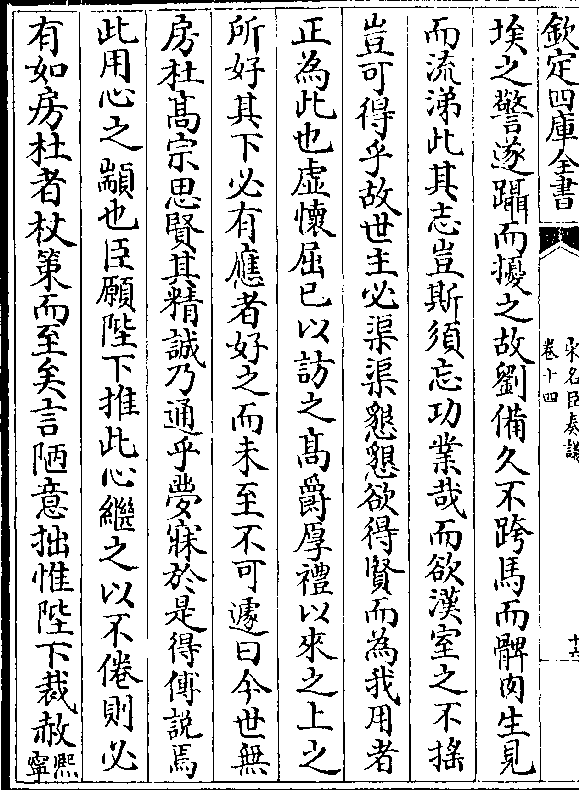 欽定四庫全書
宋名臣奏議
卷十四
十六
埃之警遂躡而擾之故劉備久不跨馬而髀肉生見
而流涕此其志豈斯須忘功業哉而欲漢室之不搖
豈可得乎故世主必渠渠懇懇欲得賢而為我用者
正為此也虛懷屈已以訪之髙爵厚禮以來之上之
所好其下必有應者好之而未至不可遽曰今世無
房杜髙宗思賢其精誠乃通乎夢寐於是得傅説焉
此用心之顓也臣願陛下推此心繼之以不倦則必
有如房杜者杖策而至矣言陋意拙惟陛下裁赦熙寧